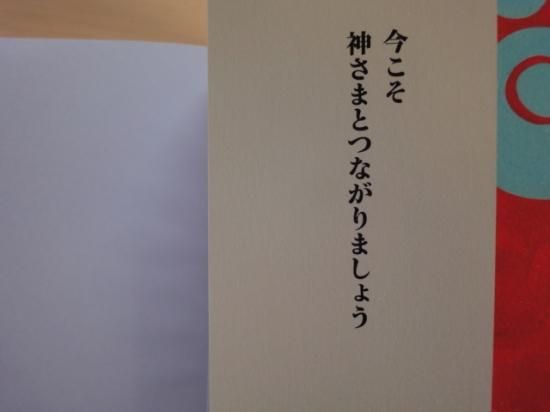 今こそ
神さまとつながりましょう